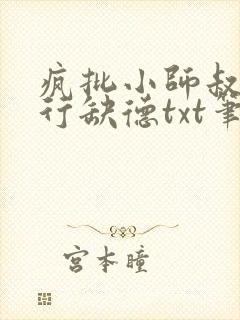 疯批小师叔
行缺德txt笔
宫本瞳